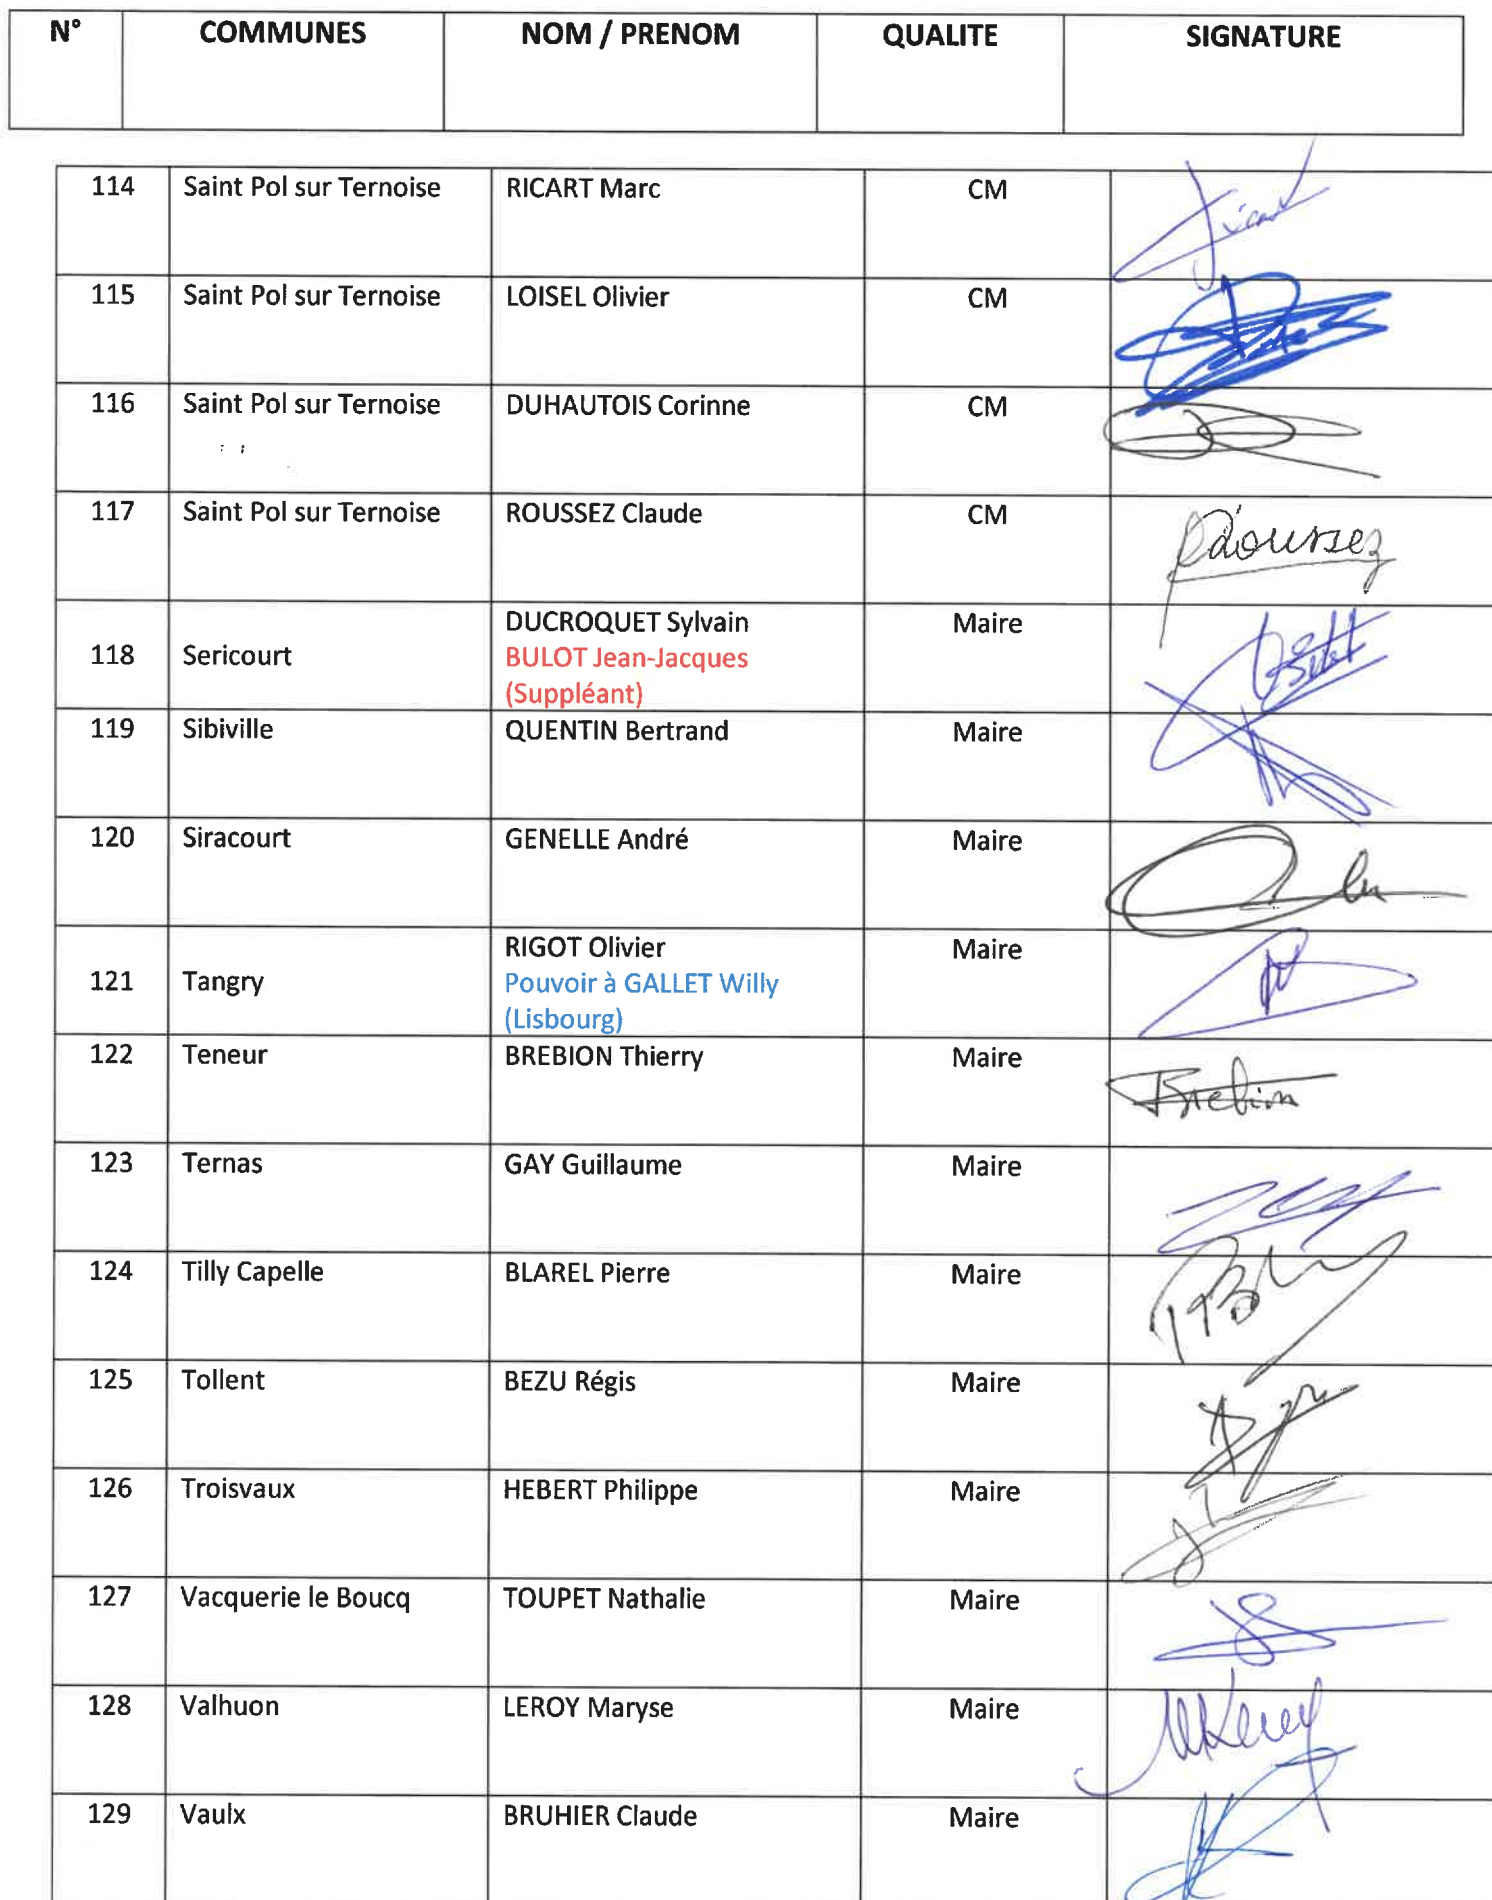 N° COMMUNES NOM / PRENOM QUALITE SIGNATURE
114 Saint Pol sur Ternoise RICART Marc CM
115 Saint Pol sur Ternoise LOISEL Olivier CM
116 Saint Pol sur Ternoise DUHAUTOIS Corinne CM
117 Saint Pol sur Ternoise ROUSSEZ Claude CM
Roussez
DUCROQUET Sylvain Maire
118 Sericourt BULOT Jean-Jacques
(Suppléant)
119 Sibiville QUENTIN Bertrand Maire
120 Siracourt GENELLE André Maire
RIGOT Olivier Maire
121 Tangry Pouvoir à GALLET Willy
(Lisbourg)
122 Teneur BREBION Thierry Maire
Brebion
123 Ternas GAY Guillaume Maire
124 Tilly Capelle BLAREL Pierre Maire
125 Tollent BEZU Régis Maire
126 Troisvaux HEBERT Philippe Maire
127 Vacquerie le Boucq TOUPET Nathalie Maire
128 Valhuon LEROY Maryse Maire
129 Vaulx BRUHIER Claude Maire